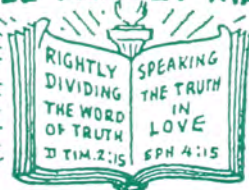 RIGHTLY
DIVIDING
THE WORD
OF TRUTH
II TIM.2:15
SPEAKING
THE TRUTH
IN
LOVE
EPH 4:15